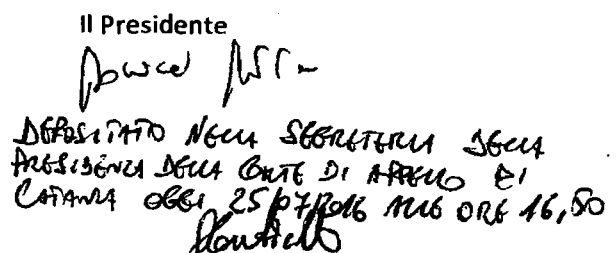 Il Presidente
DEPOSITATO NELLA SEGRETERIA DELLA
PRESIDENZA DELLA CORTE DI APPELLO DI
CATANIA OGGI 25/07/2016 ALLE ORE 16,50